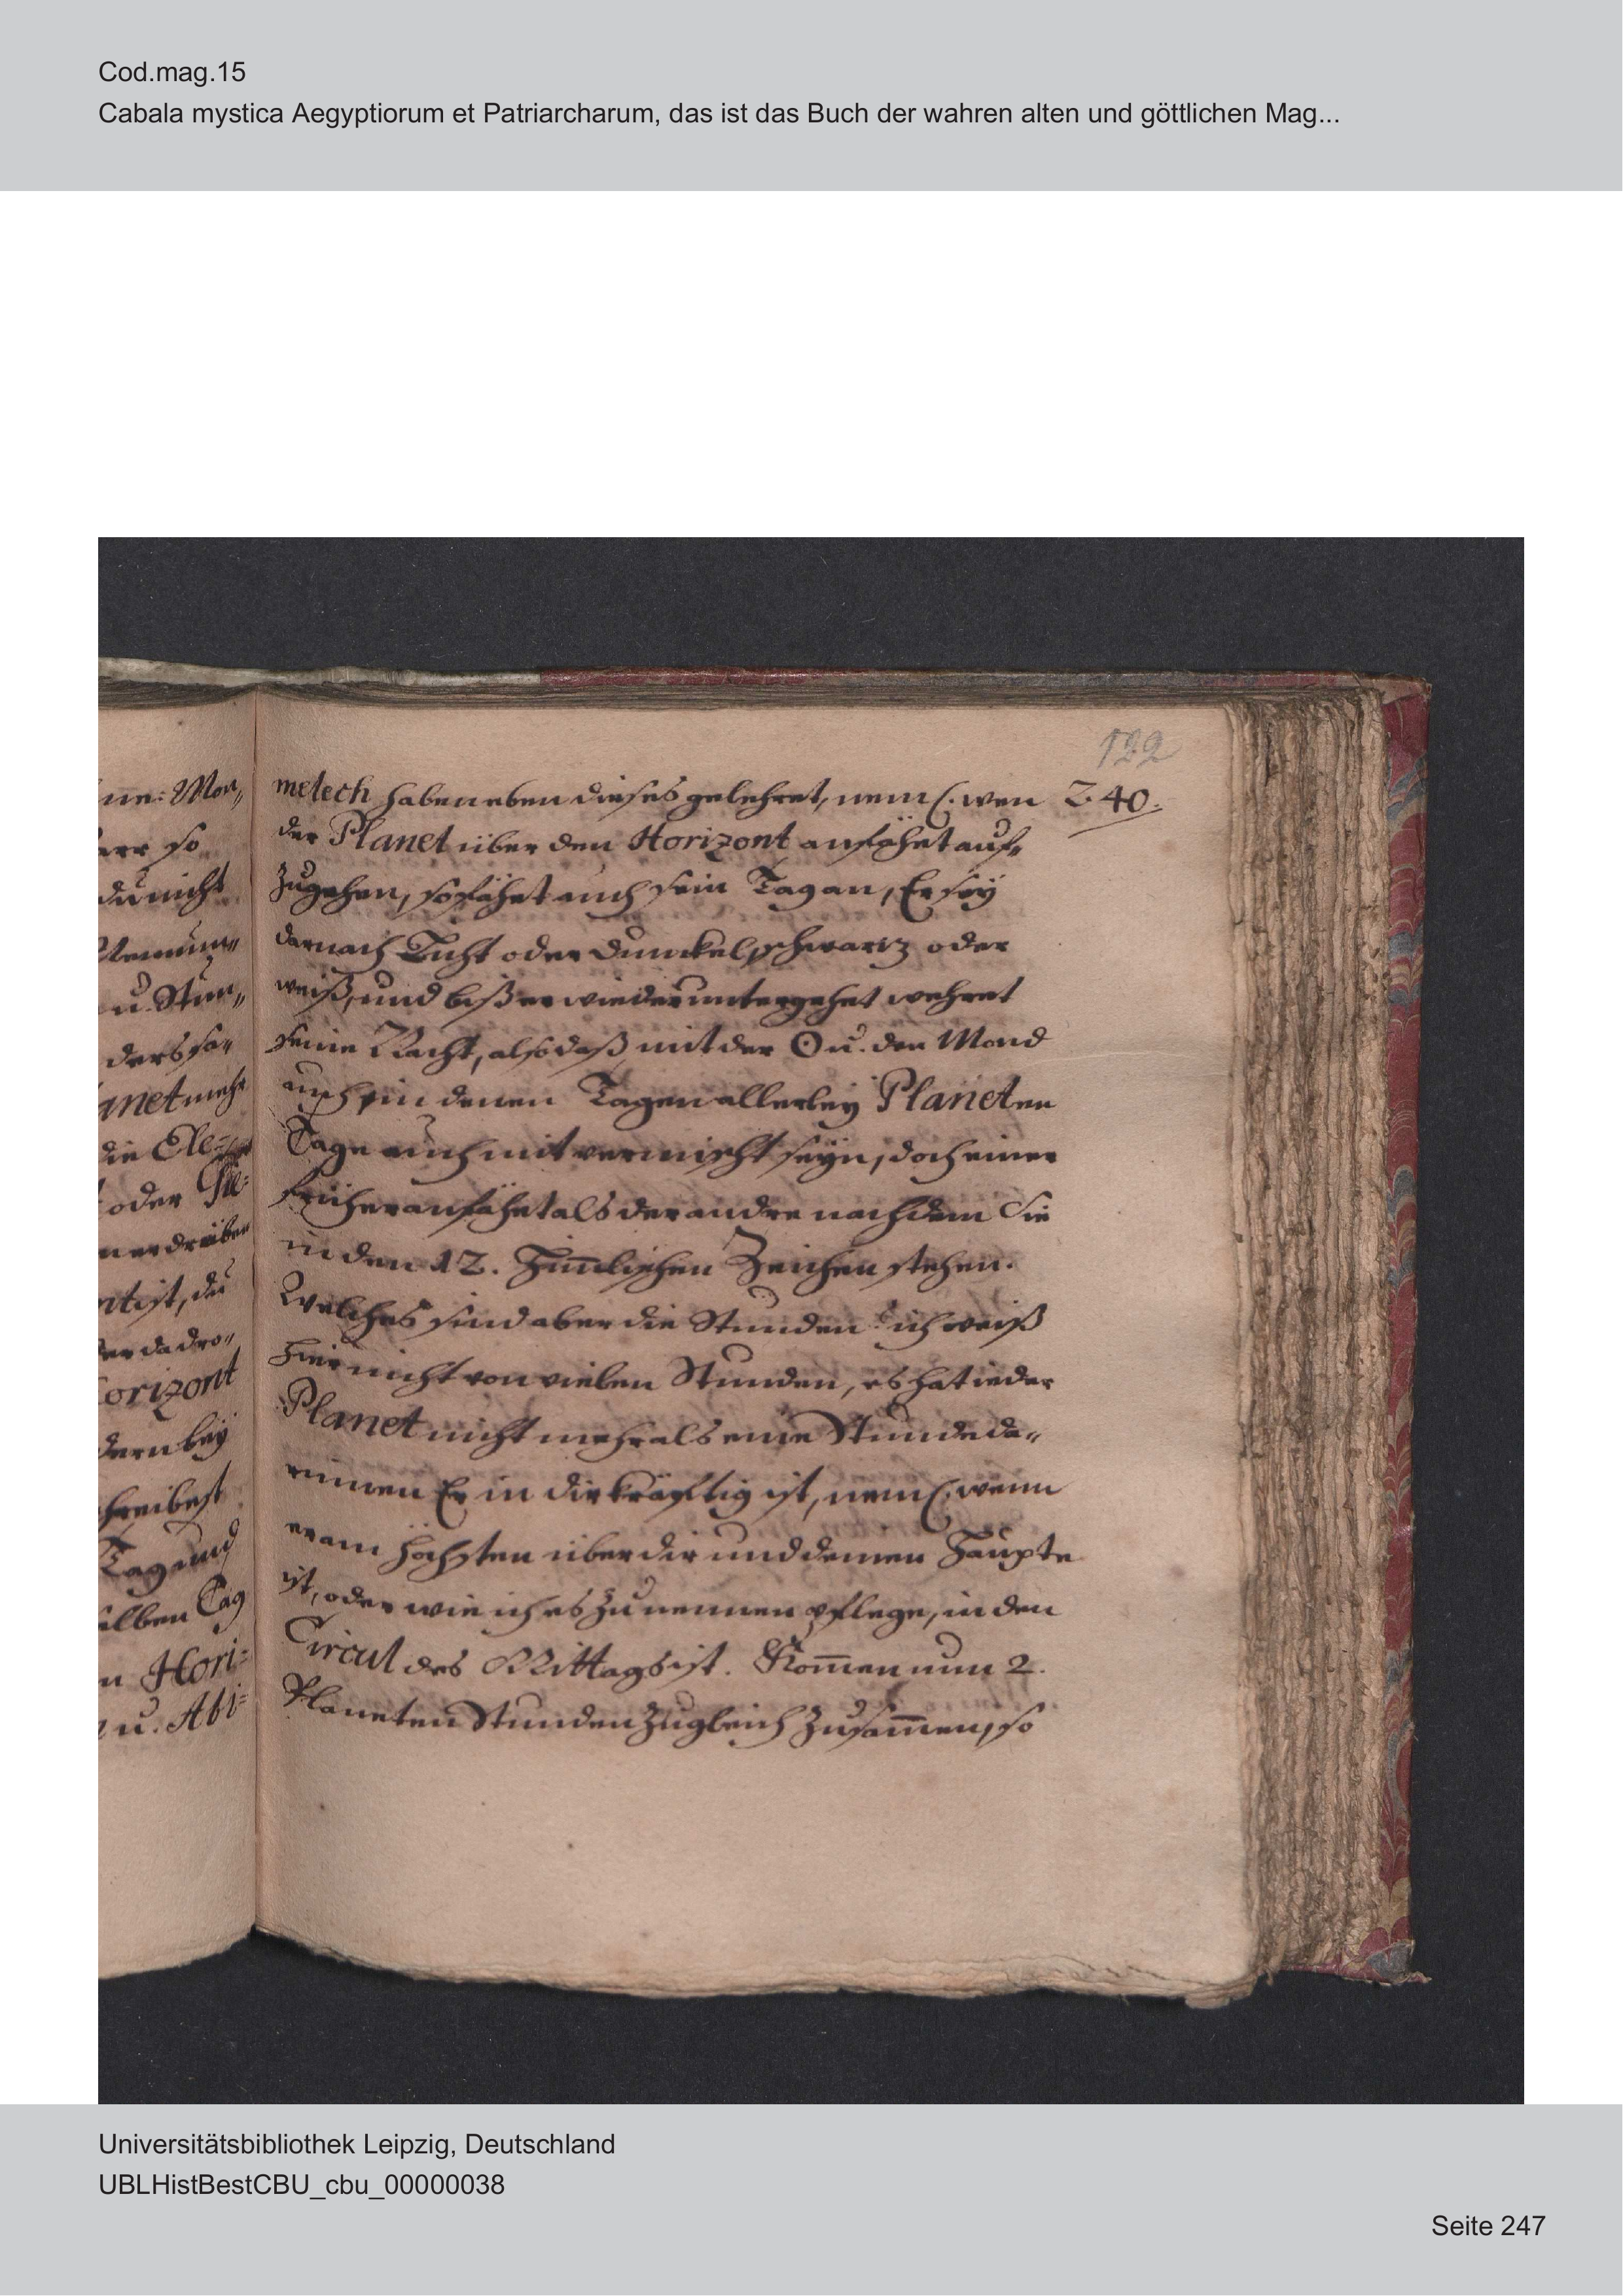 Cod.mag.15
Cabala mystica Aegyptiorum et Patriarcharum, das ist das Buch der wahren alten und göttlichen Mag...
122
240.
melech haben eben dieses gelehret, neml. wen
der Planet über den Horizont anfähet auf„
zugehen, so fähet auch sein Tag an, Er sey
darnach Licht oder dunckel, schwartz oder
weiß, und biß er wieder untergehet wehret
seine Nacht, also daß mit der ☉ u. den Mond
auch in denen Tagen allerley Planeten
Tage auch mit vermischt seyn, doch einer
früher anfähet als der andre nachdem Sie
in den 12. Him̅lischen Zeichen stehen.
Welches sind aber die Stunden? ich weiß
hier nicht von vielen Stunden, es hat ieder
Planet nicht mehr als eine Stunde da„
rinnen Er in dir kräfftig ist, neml. wenn
er am höchsten über dir und deinen Haupte
ist, oder wie ich es zu nennen pflege, in den
Circul des Mittags ist. Kom̅en nun 2.
Planeten Stunden zugleich zusam̅en, so
ne: Mon„
so
du nicht
u. Stun„
ders so„
anet mehr
die Ele=
oder
ntist, du
er da dro„
orizont
dern bey
hreibest
Tag und
elben Tag
n Hori=
u. Abi=
Universitätsbibliothek Leipzig, Deutschland
UBLHistBestCBU_cbu_00000038
Seite 247